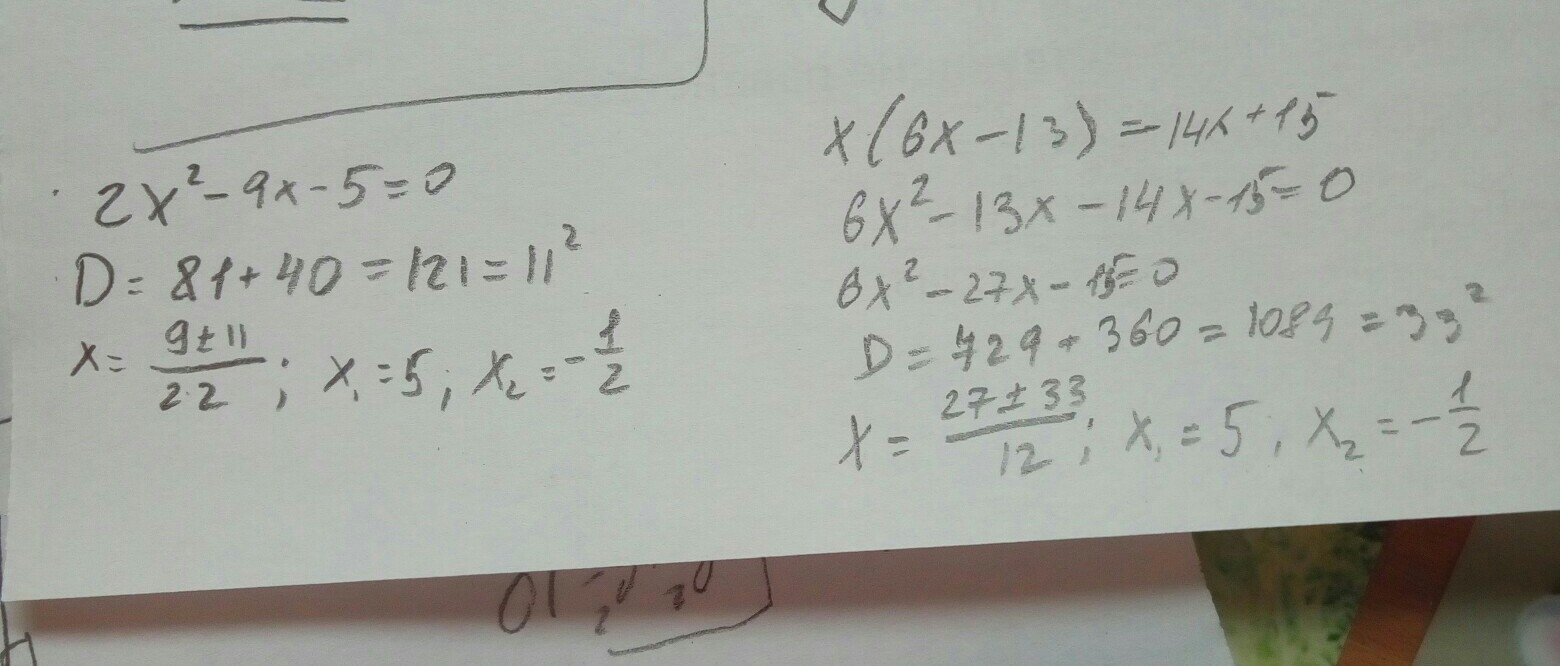 2x²-9x-5=0
D=81+40=121=11²
x=(9±11)/(2·2); x₁=5; x₂=-1/2
x(6x-13)=14x+15
6x²-13x-14x-15=0
6x²-27x-15=0
D=729+360=1089=33²
x=(27±33)/12; x₁=5; x₂=-1/2